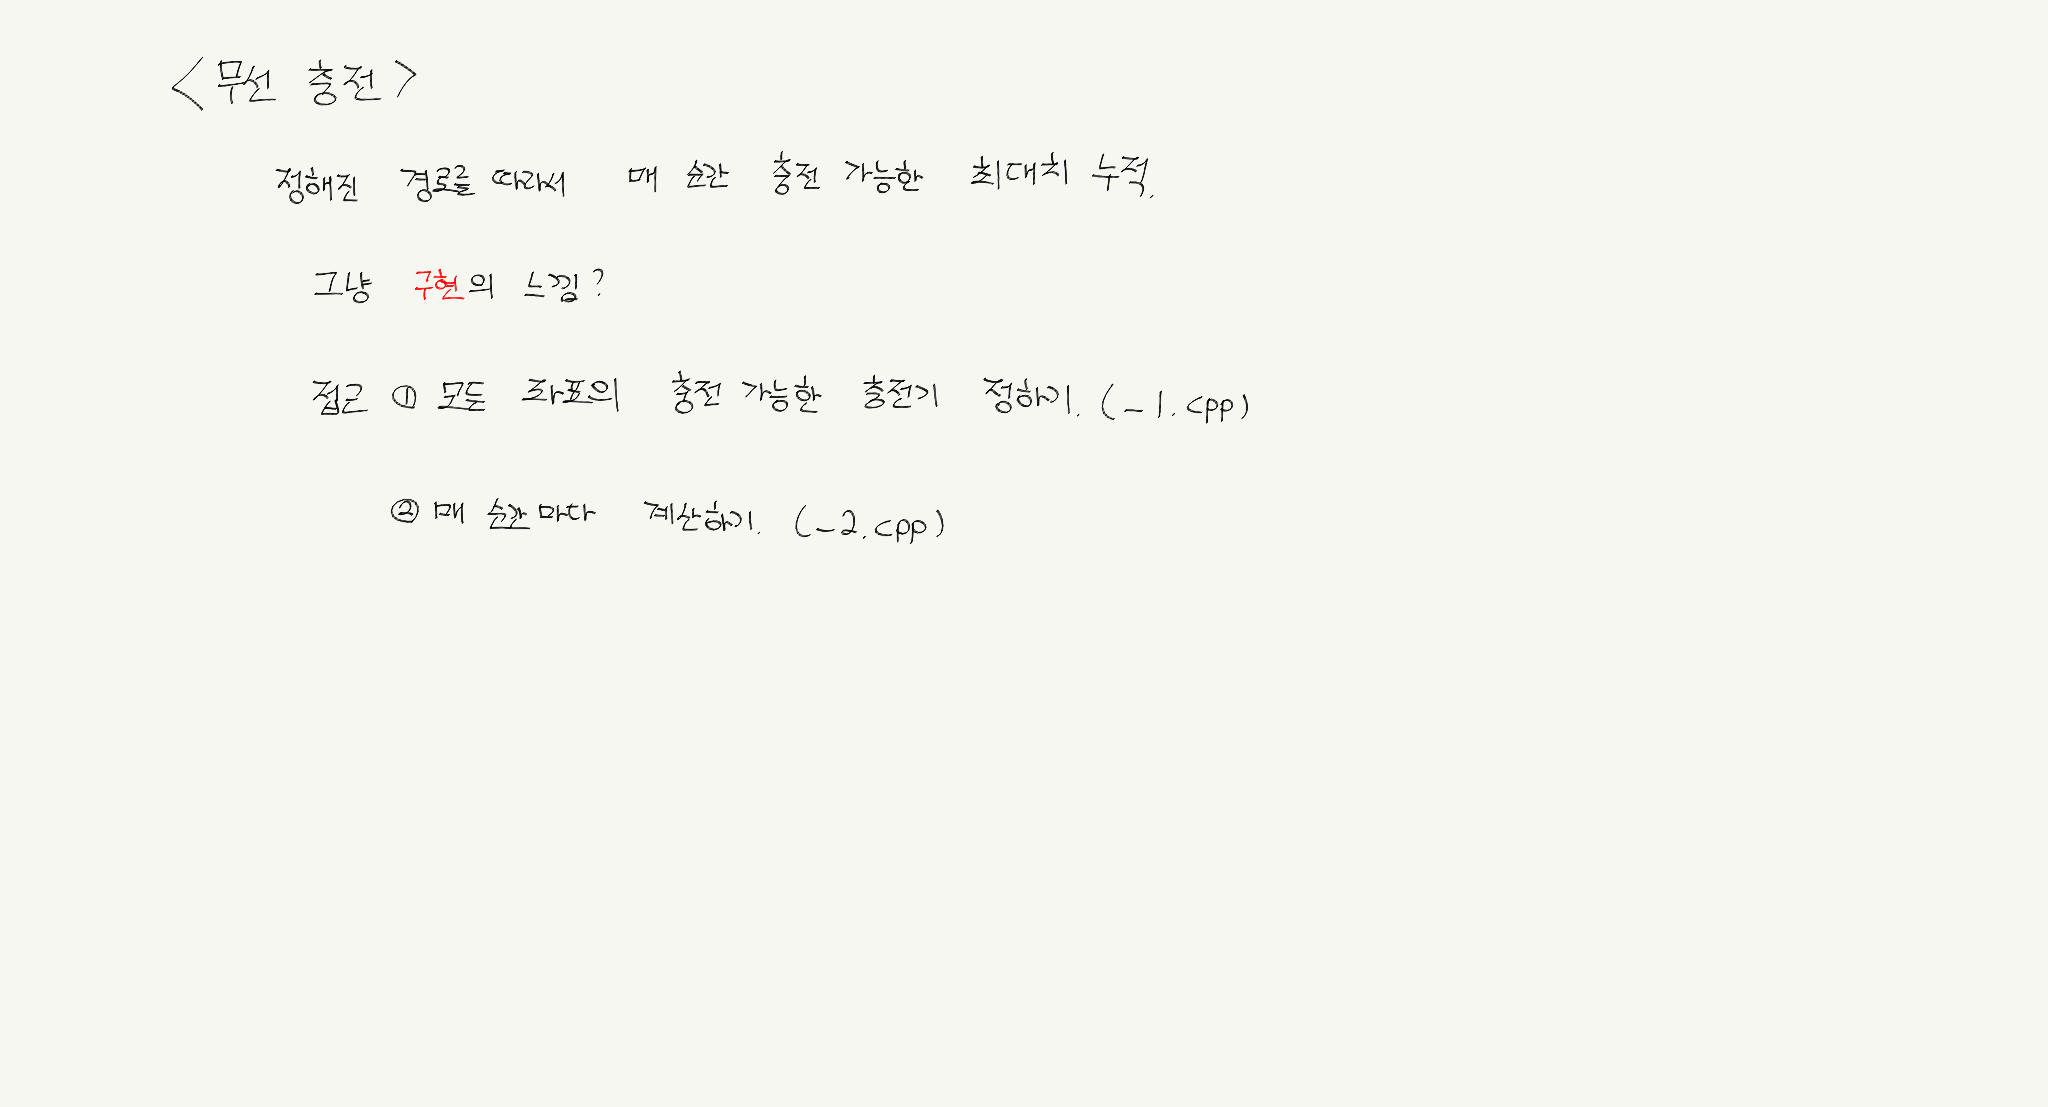 <무선 충전>
정해진 경로를 따라서 매 순간 충전 가능한 최대치 누적.
그냥 구현의 느낌?
접근 ① 모든 좌표의 충전 가능한 충전기 정하기. (_1.cpp)
② 매 순간마다 계산하기. (_2.cpp)